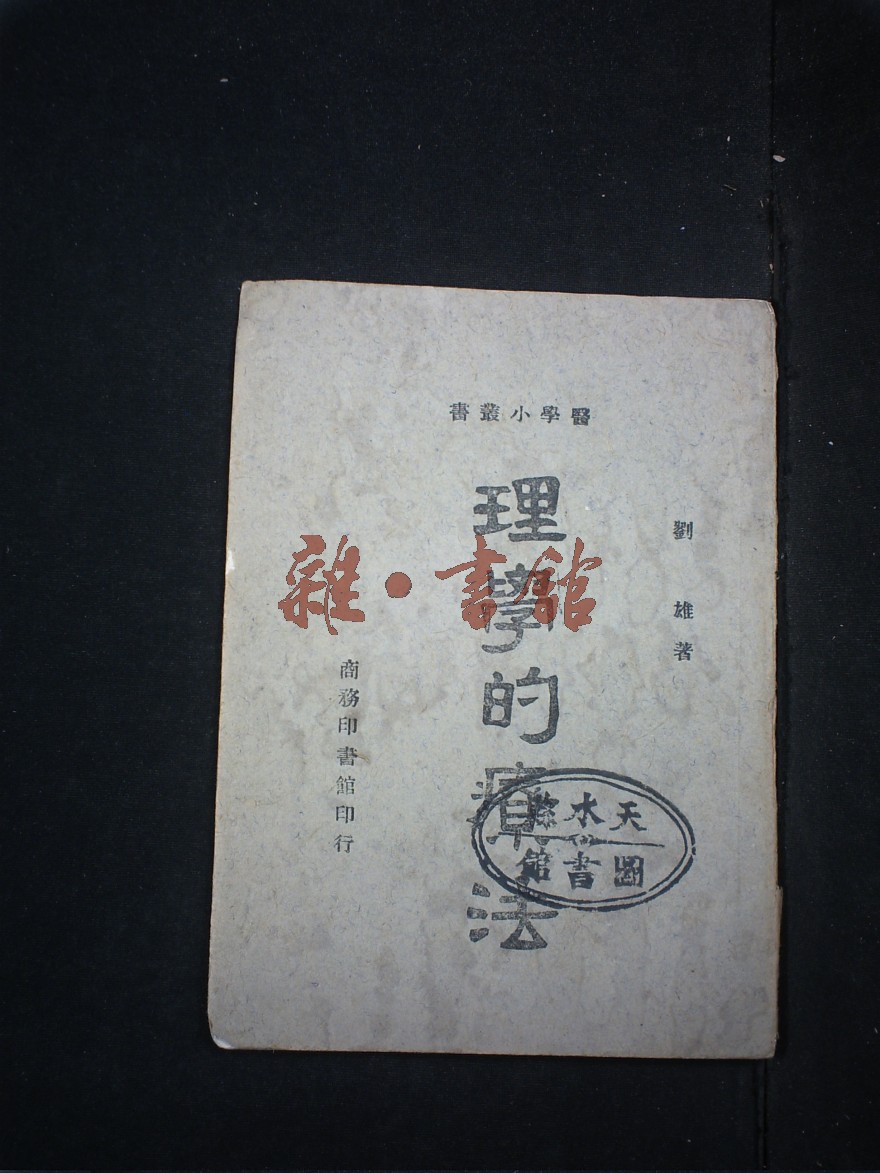 醫學小叢書
劉雄著
理學的療法
商務印書館印行
天水縣
圖書館
雜·書館